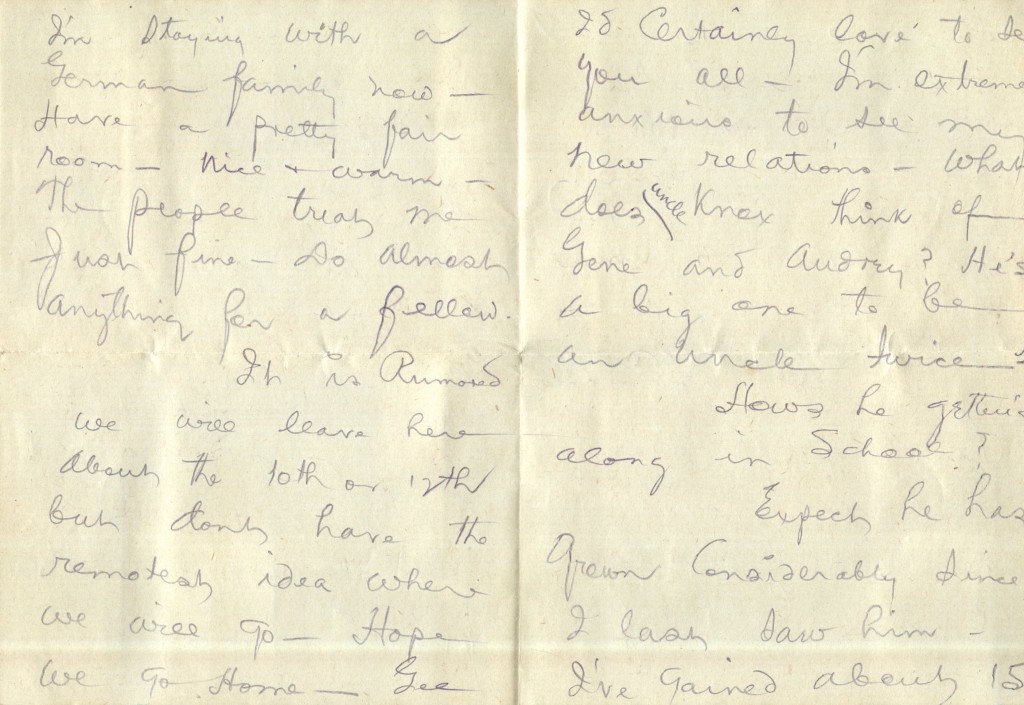 I'm Staying with a
German family now —
Have a pretty fair
room — nice + warm —
The people treat me
Just fine — Do almost
anything for a fellow.
It is Rumored
we will leave here
About the 10th or 12th
but dont have the
remotest idea where
we will go — Hope
we go Home — Gee
Id Certainly love to se
you all — I'm extreme
anxious to see my
new relations — What
does uncle Knox think of
Gene and Audrey? He's
a big one to be
an uncle twice —
Hows he gettin
along in School?
Expect he has
Grown Considerably Since
I last saw him —
I've Gained about 15